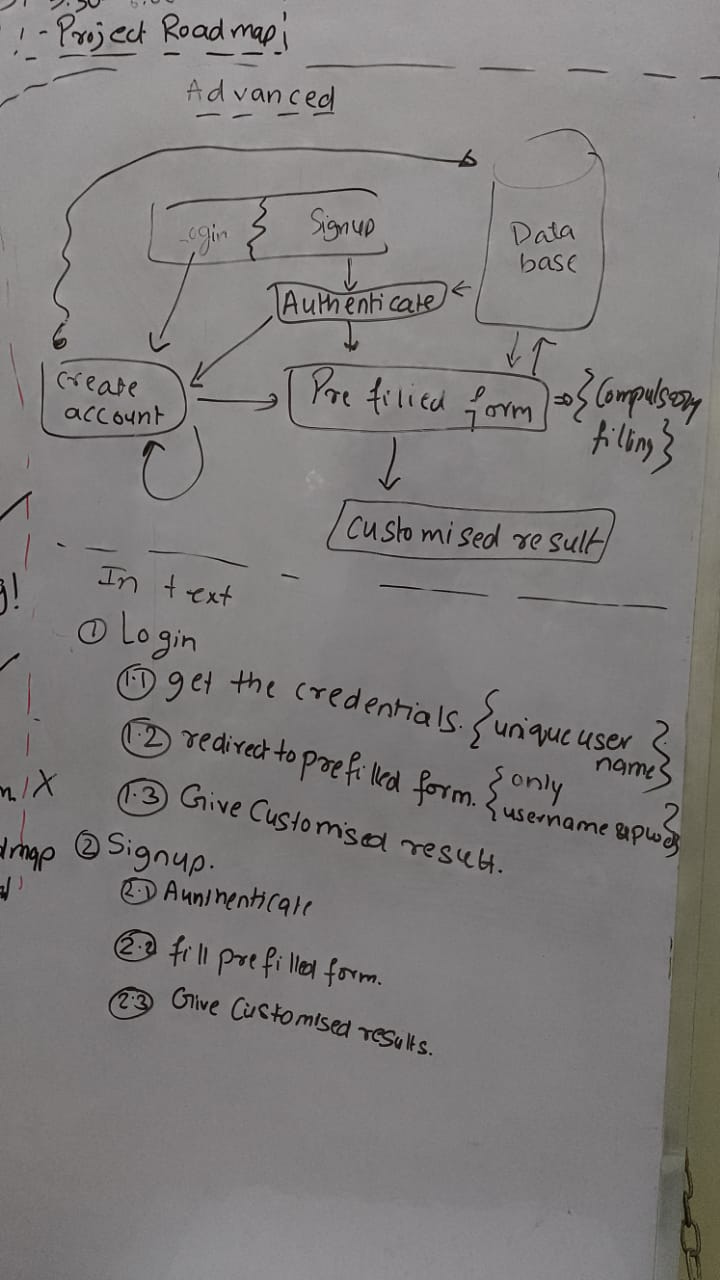 3.30
!- Project Roadmap¡
Advanced
Login
Signup
Data
base
Authenticate
create
account
Pre filled form
=> {Compulsory
filling}
customised result
In text
① Login
1.1 get the credentials. {unique user
name}
1.2 redirect to prefilled form. {only
username & pwd}
1.3 Give Customised result.
② Signup.
2.1 Auninenticate
2.2 fill prefilled form.
2.3 Give Customised results.